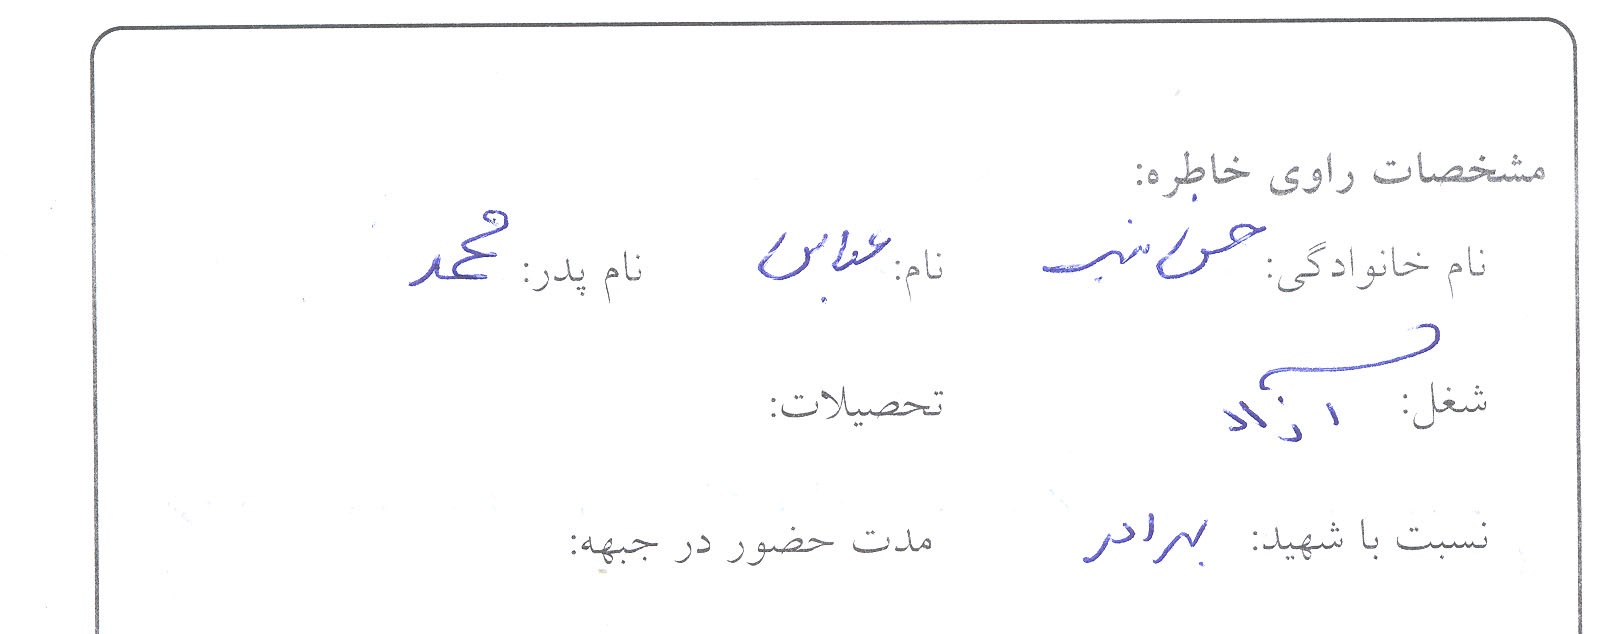 مشخصات راوی خاطره:
نام خانوادگی: حسن نام: عباس نام پدر: محمد
شغل: ازاد تحصیلات:
نسبت با شهید: برادر مدت حضور در جبهه: